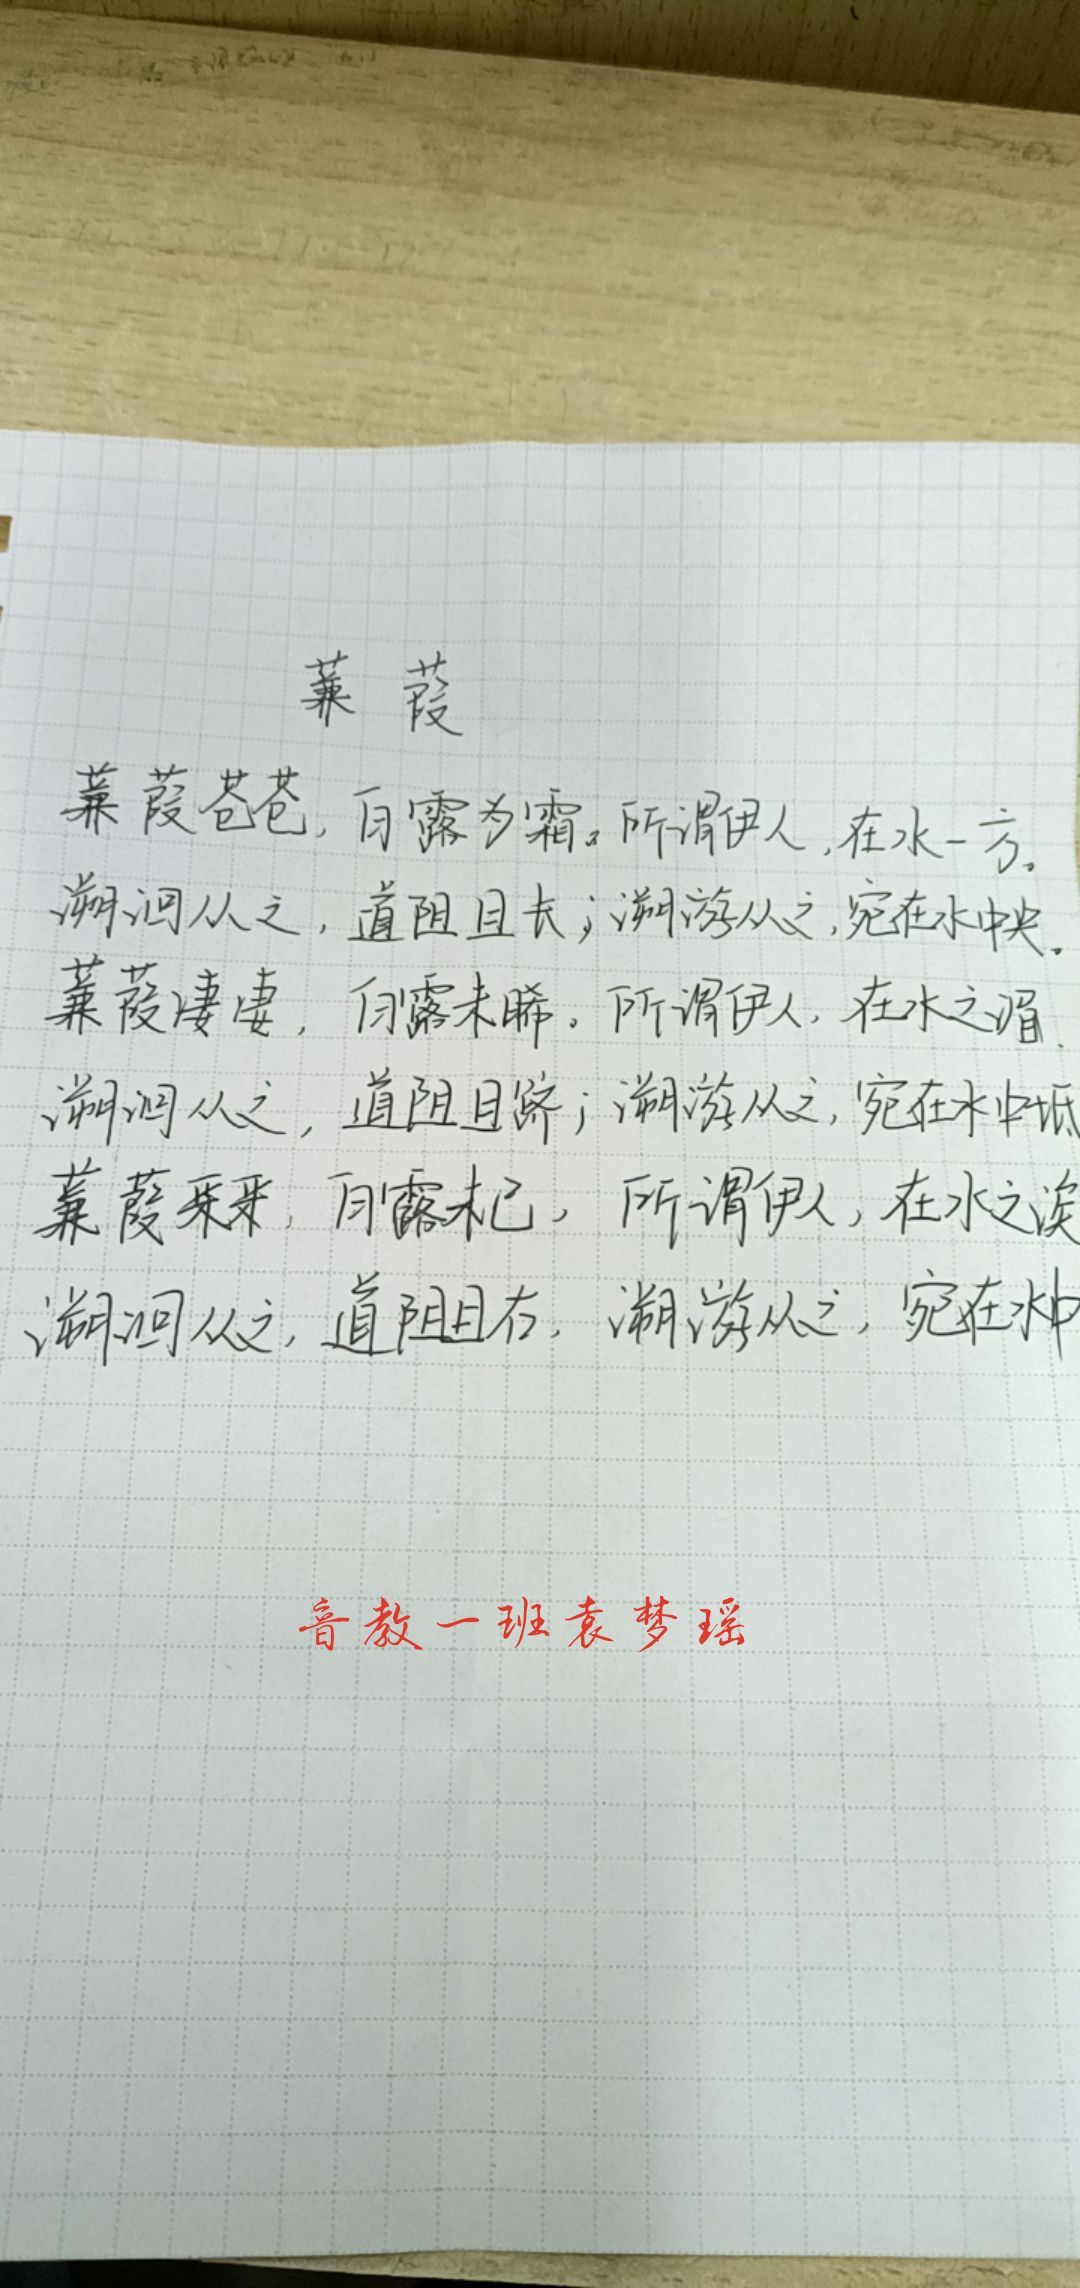 蒹葭
蒹葭苍苍,白露为霜。所谓伊人,在水一方。
溯洄从之,道阻且长;溯游从之,宛在水中央。
蒹葭凄凄,白露未晞。所谓伊人,在水之湄.
溯洄从之,道阻且跻;溯游从之,宛在水中坻
蒹葭采采,白露未已,所谓伊人,在水之涘
溯洄从之,道阻且右,溯游从之,宛在水中
音教一班袁梦瑶